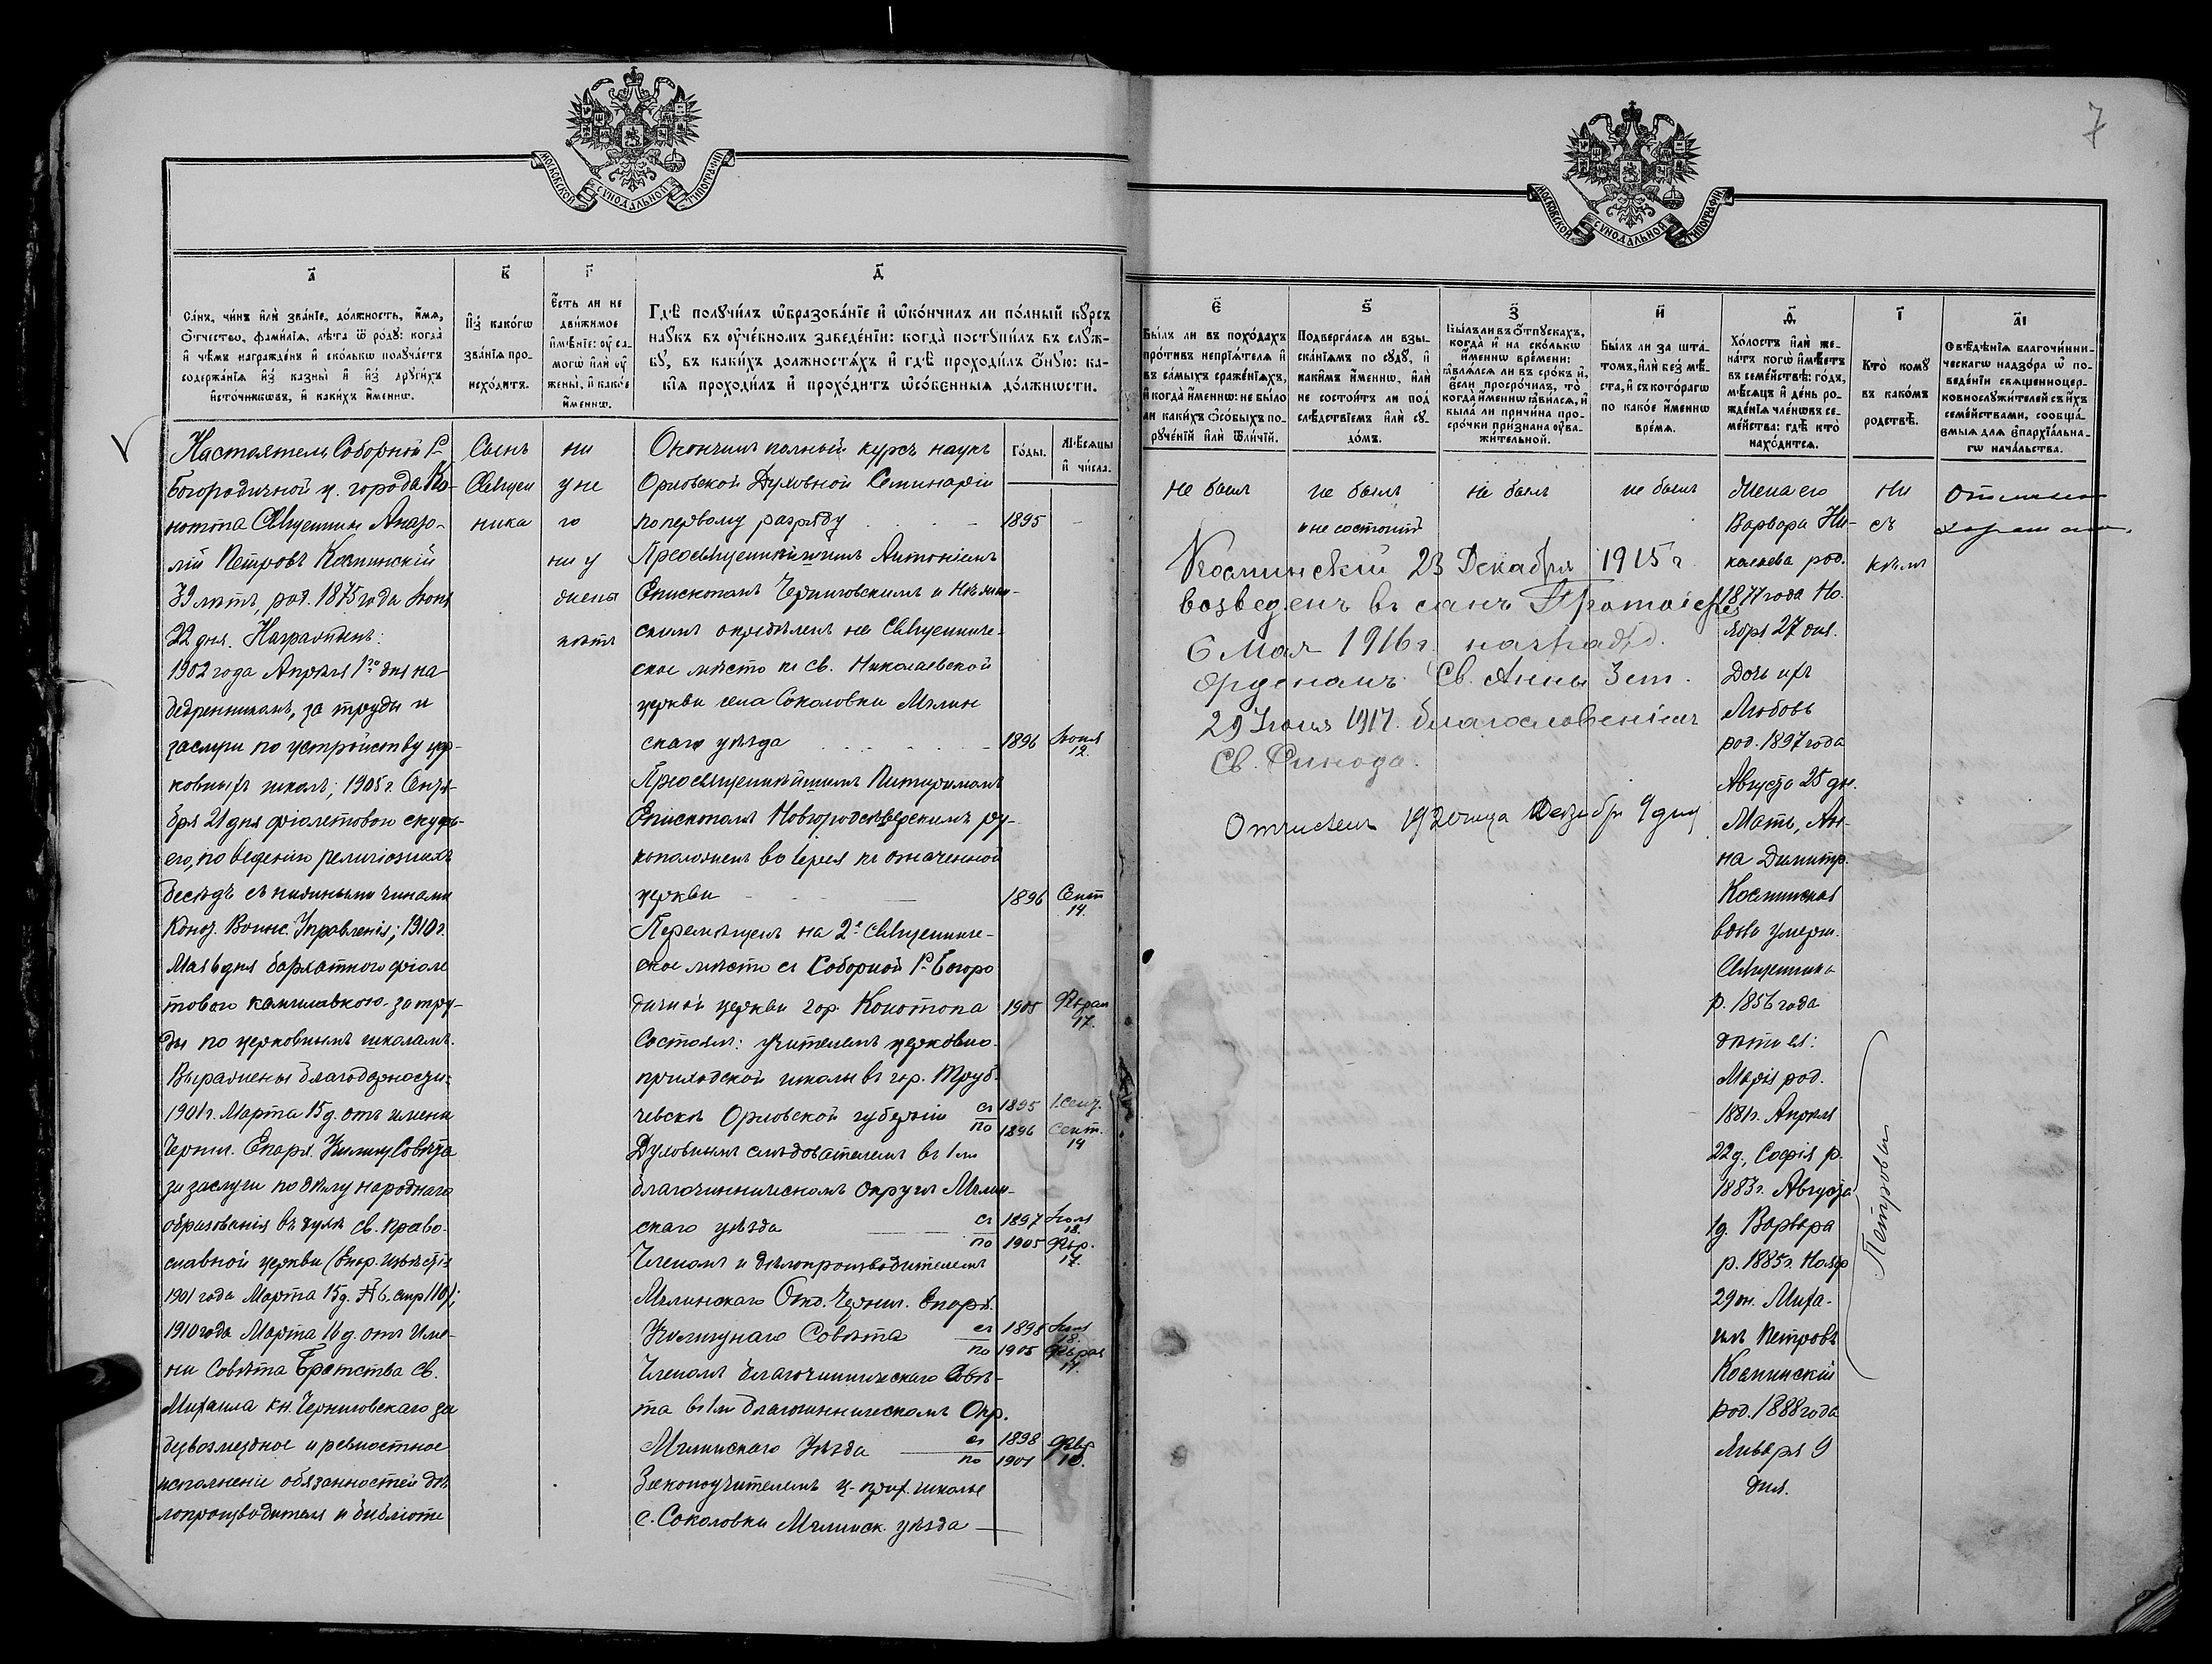 7
МОСКОВСКОЙ СѴНОДАЛЬНОЙ ТИПОГРАФІИ
МОСКОВСКОЙ СѴНОДАЛЬНОЙ ТИПОГРАФІИ
а҃
Са́нъ, чи́нъ и҆лѝ зва́нїе, до́лжность, и҆́мѧ,
ѻ҆́тчество, фами́лїѧ, лѣ́та ѿ ро́дꙋ: когда̀
и҆ чѣ́мъ награжде́нъ и҆ ско́лькѡ полꙋча́етъ
содержа́нїѧ и҆з̾ казны̀ и҆ и҆з̾ дрꙋги́хъ
и҆сто́чникѡвъ, и҆ каки́хъ и҆́меннѡ.
к҃
И҆з̾ како́гѡ
зва́нїѧ про-
исхо́дитъ.
г҃
Є҆́сть ли не
дви́жимое
и҆мѣ́нїе: ᲂу҆ са-
могѡ̀ и҆лѝ ᲂу҆
жены̀, и҆ како́е
и҆́меннѡ.
д҃
Гдѣ̀ полꙋчи́лъ ѡ҆бразова́нїе и҆ ѡ҆ко́нчилъ ли по́лный кꙋ́рсъ
наꙋ́къ въ ᲂу҆че́бномъ заведе́нїи: когда̀ постꙋпи́лъ въ слꙋ́ж-
бꙋ, въ каки́хъ должностѧ́хъ и҆ гдѣ̀ проходи́лъ ѻ҆́нꙋю: ка-
кі́ѧ проходи́лъ и҆ прохо́дитъ ѡ҆со́бенныѧ до́лжности.
Го́ды.
Мѣ́сѧцы
и҆ чи́сла.
Настоятель Соборной Р-
богородичной ц. города Ко-
нотопа Священникъ Анато-
лій Петровъ Косминскій
39 лѣтъ, род. 1875 года Іюня
22 дня. Награжденъ:
1902 года Апрѣля 1го дня на-
бедренникомъ, за труды и
заслуги по устройству цер-
ковныхъ школъ; 1905 г. Сентя-
бря 21 дня фіолетовою скуфь-
ею, по веденію религіозныхъ
бесѣдъ съ нижними чинами
Коно. Воинс. Управленія; 1910 г.
Мая 6 дня бархатного фіоле
товою камилавкою за тру-
ды по церковнымъ школамъ.
Выражены благодарности:
1901 г. Марта 15 д. отъ имени
Черниг. Епарх. Училищ. Совѣта
за заслуги по дѣлу народнаго
образованія въ духѣ св. право-
славной церкви (Епар. Извѣстія
1901 года Марта 15 д. № 6. стр 110);
1910 года Марта 16 д. отъ име-
ни Совѣта Братства Св.
Михаила кн. Черниговскаго за
безвозмездное и ревностное
исполненіе обязанностей дѣ-
лопроизводителя и библіоте
Сынъ
Священ
ника
ни
у не
го
ни у
жены
нѣтъ
Окончилъ полный курсъ наукъ
Орловской Духовной Семинаріи
по первому разряду 1895
Преосвященнѣйшимъ Антоніемъ
Епископомъ Черниговскимъ и Нѣжин-
скимъ опредѣленъ на Священниче-
ское мѣсто къ св. Николаевской
церкви села Соколовки Мглин
скаго уѣзда 1896 Іюня 12.
Преосвященнѣйшимъ Питиримомъ
Епископомъ Новгородсѣверскимъ ру-
коположенъ во іерея къ означенной
церкви 1896 Сент 14.
Перемѣщенъ на 2е священниче-
ское мѣсто къ Соборной Р-Богоро
дичной церкви гор. Конотопа 1905 Февраля 17.
Состоялъ: учителемъ церковно-
приходской школы въ гор. Труб-
чевскѣ Орловской губерніи съ 1895 1 сент.
по 1896 Сент. 14
Духовнымъ слѣдователемъ въ 1 мъ
благочинническомъ округѣ Мглин-
скаго уѣзда съ 1897 Іюля 18.
по 1905 Февр. 17.
Членомъ и дѣлопроизводителемъ
Мглинскаго Отд. Черниг. Епарх.
Училищнаго Совѣта съ 1898 18.
по 1905 Февраля 17.
Членомъ благочинническаго Совѣ-
та въ 1 мъ благочинническомъ Окр.
Мглинскаго Уѣзда съ 1898 Февр
по 1901 10.
Законоучителемъ ц-прих. школы
с. Соколовки Мглинск. уѣзда
є҃
Бы́лъ ли въ похо́дахъ
про́тивъ непрїѧ́телѧ и҆
въ са́мыхъ сраже́нїѧхъ,
и҆ когда̀ и҆́меннѡ: не бы́ло
ли каки́хъ ѻ҆со́быхъ по-
рꙋче́нїй и҆лѝ ѿли́чїй.
ѕ҃
Подверга́лсѧ ли взы-
ска́нїѧмъ по сꙋдꙋ̀, и҆
каки̑мъ и҆́меннѡ, и҆лѝ
не состои́тъ ли под̾
слѣ́дствїемъ и҆лѝ сꙋ-
до́мъ.
з҃
Бы́лъ ли въ ѻ҆́тпꙋскахъ,
когда̀ и҆ на ско́лькѡ
и҆́меннѡ вре́мени:
ꙗ҆влѧ́лсѧ ли въ сро́къ и҆,
є҆́сли просро́чилъ, то̀
когда̀ и҆́меннѡ ꙗ҆ви́лсѧ, и҆
была̀ ли причи́на про-
сро́чки при́знана ᲂу҆ва-
жи́тельной.
и҃
Бы́лъ ли за шта́-
томъ, и҆лѝ без̾ мѣ́-
ста, и҆ съ кото́рагѡ
по како́е и҆́меннѡ
вре́мѧ.
ѳ҃
Хо́лостъ и҆лѝ же-
на́тъ когѡ̀ и҆мѣ́етъ
въ семе́йствѣ: го́дъ,
мѣ́сѧцъ и҆ де́нь ро-
жде́нїѧ чле́нѡвъ се-
ме́йства: гдѣ̀ кто̀
нахо́дитсѧ.
і҃
Кто̀ комꙋ̀
въ како́мъ
родствѣ̀.
а҃і
Свѣ́дѣнїѧ благочи́нни-
ческагѡ надзо́ра ѡ҆ по-
веде́нїи свѧщенноцер-
ковнослꙋжи́телей съ и҆́хъ
семе́йствами, сообща́-
ємыѧ для є҆парх̇їа́льна-
гѡ нача́льства.
не былъ
не былъ
и не состоитъ
не былъ
не былъ
Косминскій 23 Декабря 1915 г
возведенъ въ санъ Протоіерея
6 Мая 1916 г. награжд.
орденомъ Св. Анны 3 ст.
29 Іюня 1917. благословеніемъ
Св. Синода.
Отчисленъ 1920 года Декабря 9 дня
Жена его
Варвара Ни-
колаева род.
1877 года Но-
ября 27 дня.
Дочь ихъ
Любовь
род. 1897 года
Августа 25 дн.
Мать, Ан-
на Димитр.
Косминская
вдова умерш.
Священника
р. 1856 года
дѣти ея:
Марія род.
1881 г. Апрѣля
22 д., Софія р.
1883 г. Августа
1 д. Варвара
р. 1885 г. Нояб
29 дн. Миха-
илъ Петровъ
Косминскій
род. 1888 года
Января 9
дня.
Петровы
Ни
съ
кѣмъ
отлично
хорошаго